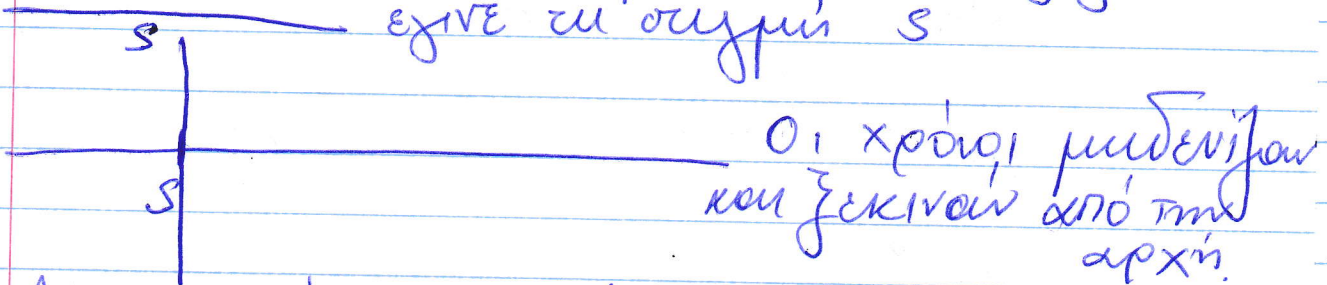 έγινε τη στιγμή s
s
Οι χρόνοι μηδενίζουν
s
και ξεκινάν από την
αρχή.